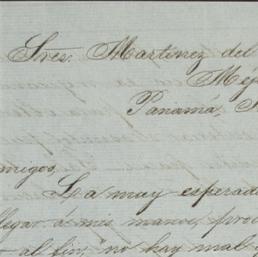 Sres. Martinez del
Mej
Panamá,
amigos,
La muy esperada
llegar a mis manos, proc
al fin, "no hay mal q